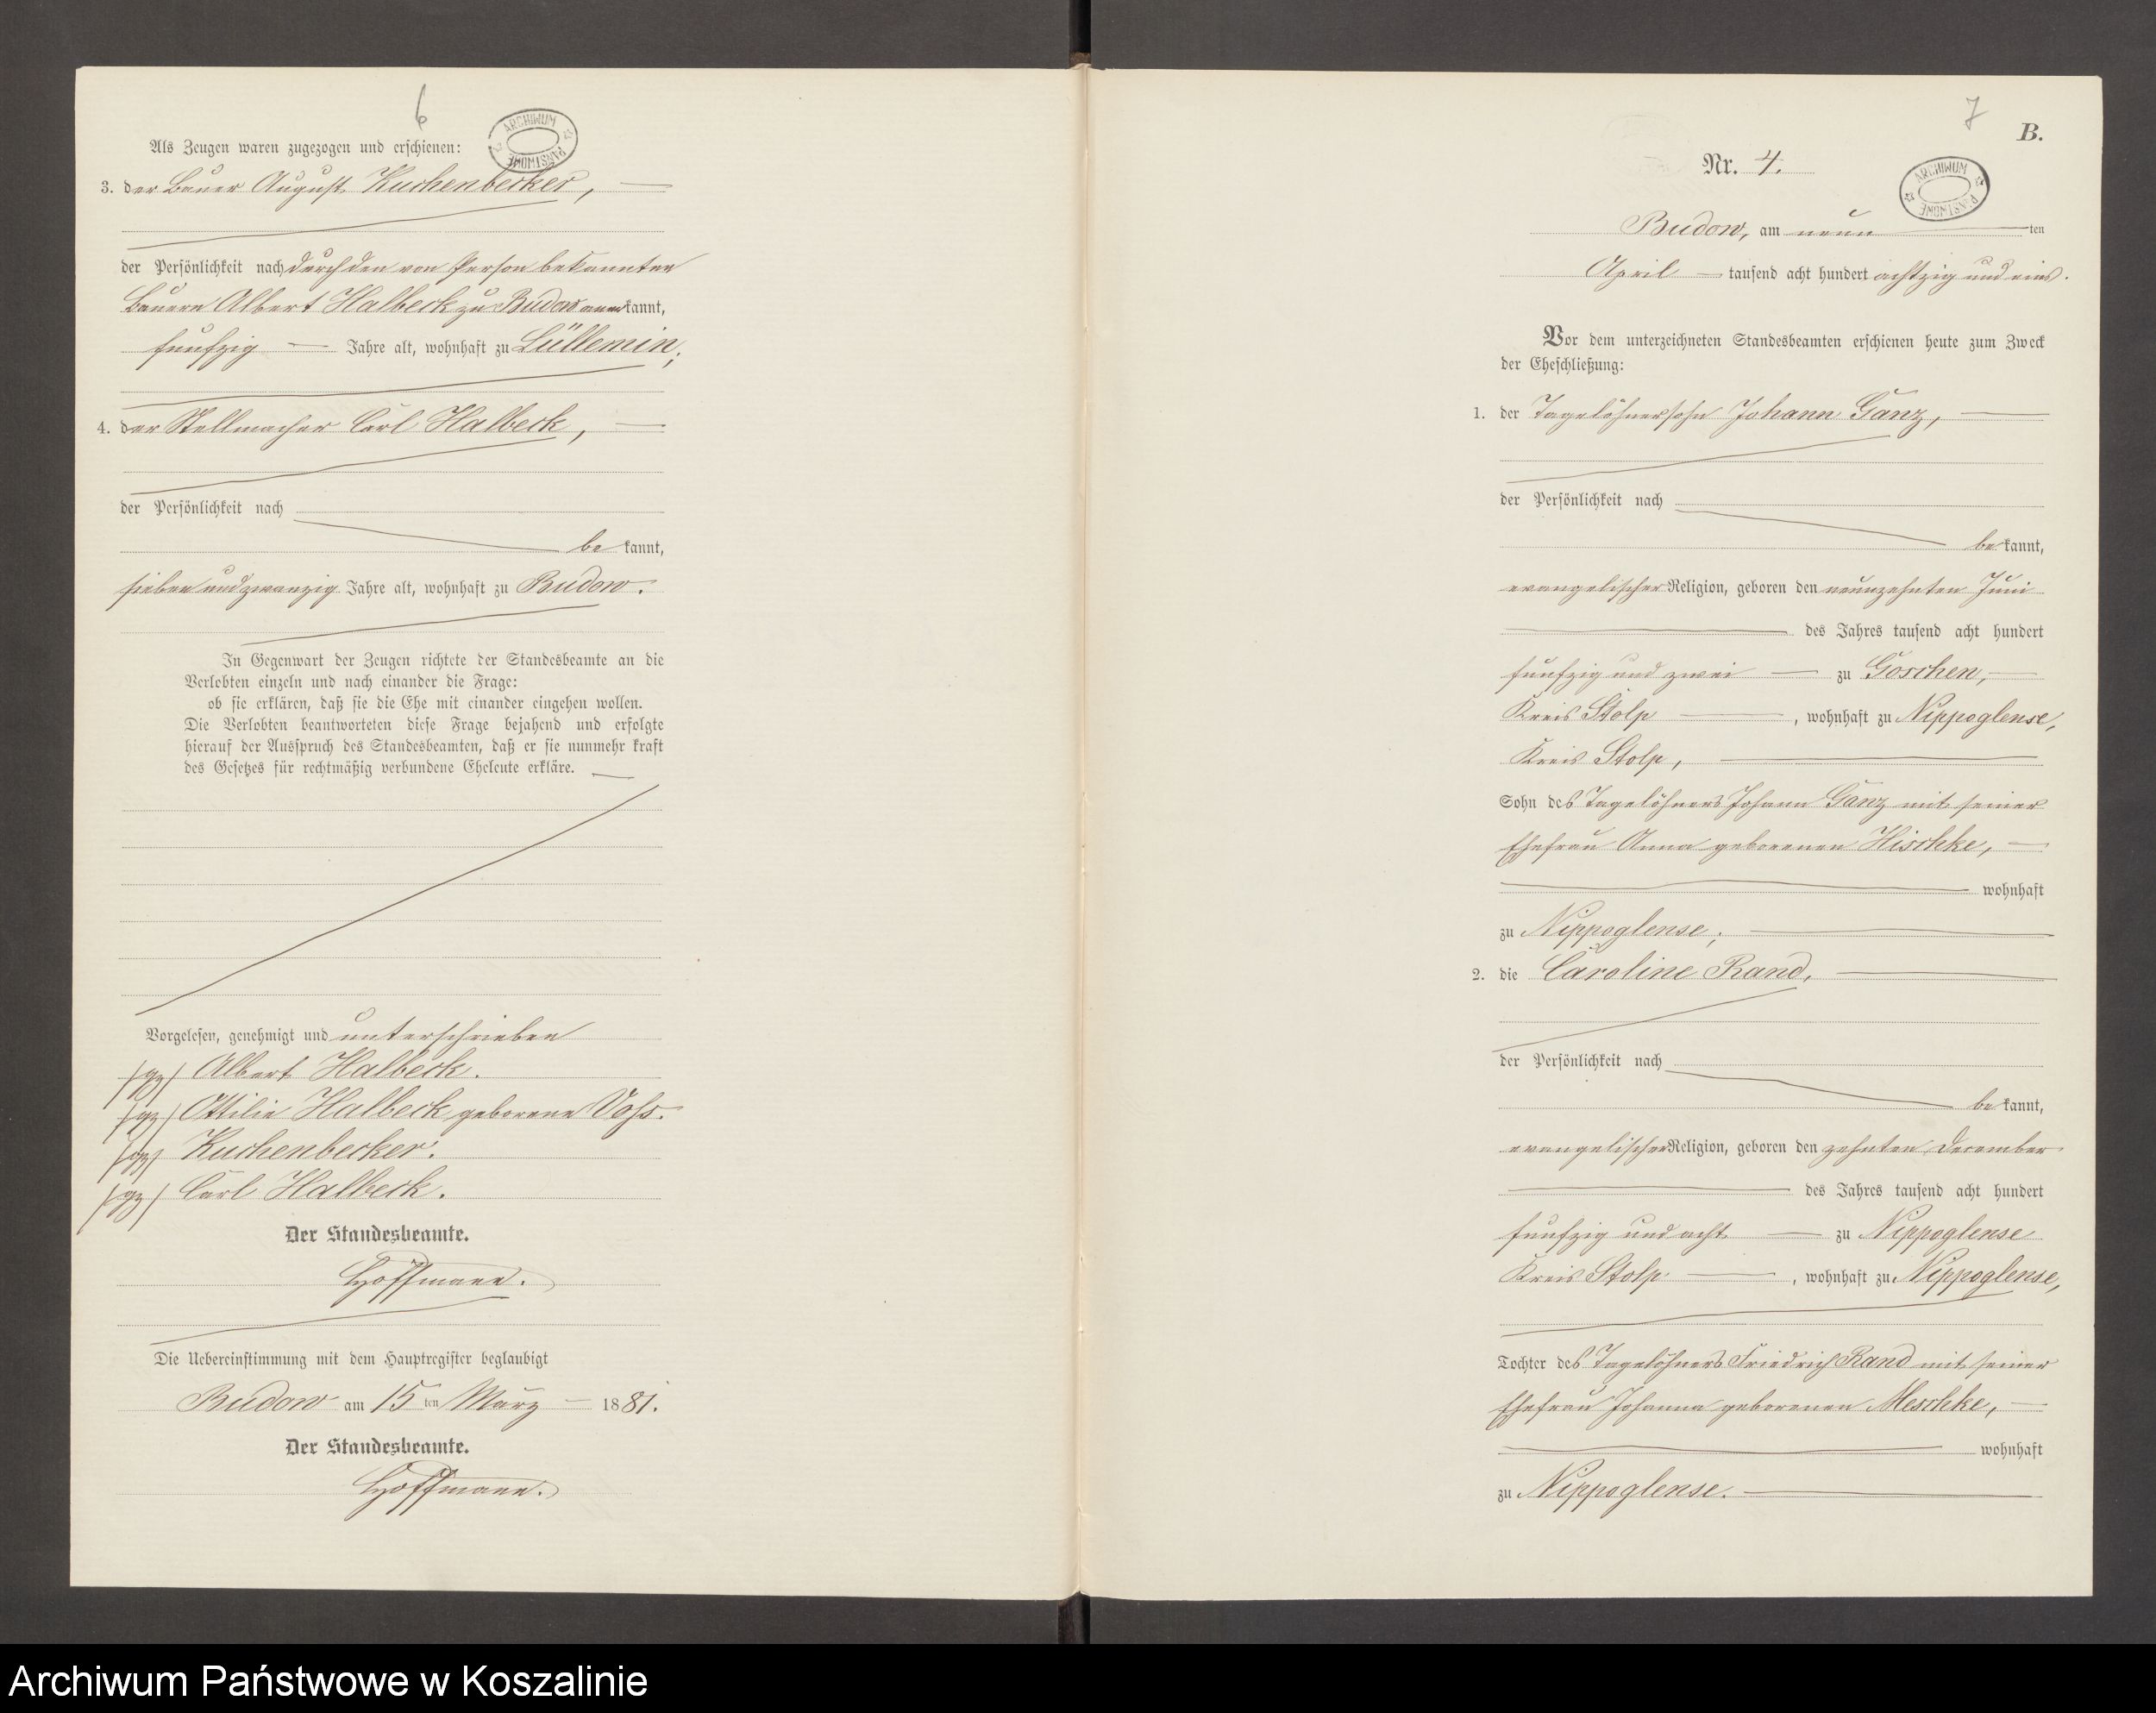 6
ARCHIWUM PAŃSTWOWE
Als Zeugen waren zugezogen und erschienen:
3. der Bauer August Kuchenbecker,
der Persönlichkeit nach durch den von Person bekannten
Bauern Albert Halbeck zu Budow anerkannt,
funfzig Jahre alt, wohnhaft zu Lüllemin;
4. der Stellmacher Carl Halbeck,
der Persönlichkeit nach
bekannt,
sieben und zwanzig Jahre alt, wohnhaft zu Budow.
In Gegenwart der Zeugen richtete der Standesbeamte an die
Verlobten einzeln und nach einander die Frage:
ob sie erklären, daß sie die Ehe mit einander eingehen wollen.
Die Verlobten beantworteten diese Frage bejahend und erfolgte
hierauf der Ausspruch des Standesbeamten, daß er sie nunmehr kraft
des Gesetzes für rechtmäßig verbundene Eheleute erkläre.
Vorgelesen, genehmigt und unterschrieben
/gz/ Albert Halbeck.
/gz/ Ottilie Halbeck geborene Voss.
/gz/ Kuchenbecker.
/gz/ Carl Halbeck.
Der Standesbeamte.
Hoffmann.
Die Uebereinstimmung mit dem Hauptregister beglaubigt
Budow am 15ten März 1881.
Der Standesbeamte.
Hoffmann.
7
B.
Nr. 4.
ARCHIWUM PAŃSTWOWE
Budow, am neun ten
April tausend acht hundert achtzig und eins.
Vor dem unterzeichneten Standesbeamten erschienen heute zum Zweck
der Eheschließung:
1. der Tagelöhnersohn Johann Ganz,
der Persönlichkeit nach
bekannt,
evangelischer Religion, geboren den neunzehnten Juni
des Jahres tausend acht hundert
funfzig und zwei zu Goschen,
Kreis Stolp, wohnhaft zu Nippoglense,
Kreis Stolp,
Sohn des Tagelöhners Johann Ganz mit seiner
Ehefrau Anna geborenen Hischke,
wohnhaft
zu Nippoglense;
2. die Caroline Rand,
der Persönlichkeit nach
bekannt,
evangelischer Religion, geboren den zehnten December
des Jahres tausend acht hundert
funfzig und acht zu Nippoglense
Kreis Stolp, wohnhaft zu Nippoglense,
Tochter des Tagelöhners Friedrich Rand mit seiner
Ehefrau Johanna geborenen Meschke,
wohnhaft
zu Nippoglense.
Archiwum Państwowe w Koszalinie